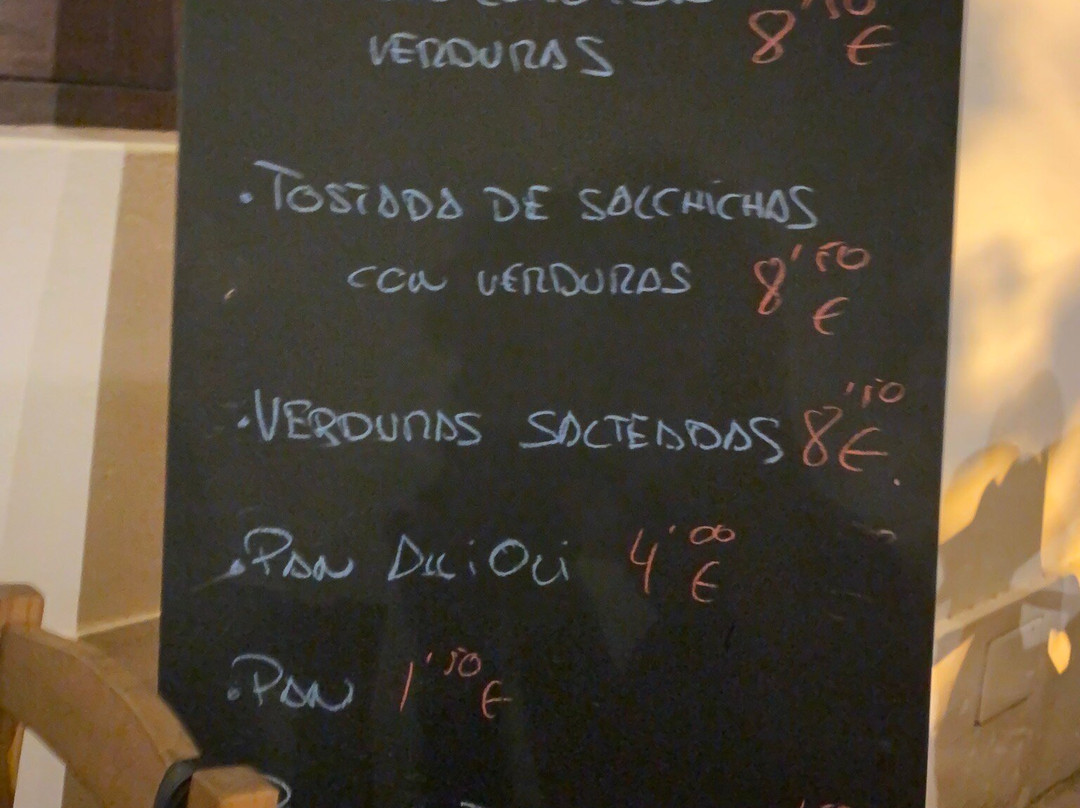 VERDURAS 8'50 €
·TOSTADA DE SALCHICHAS
CON VERDURAS 8'50 €
·VERDURAS SALTEADAS 8'50 €
·PAN ALLiOLi 4'00 €
·PAN 1'50 €